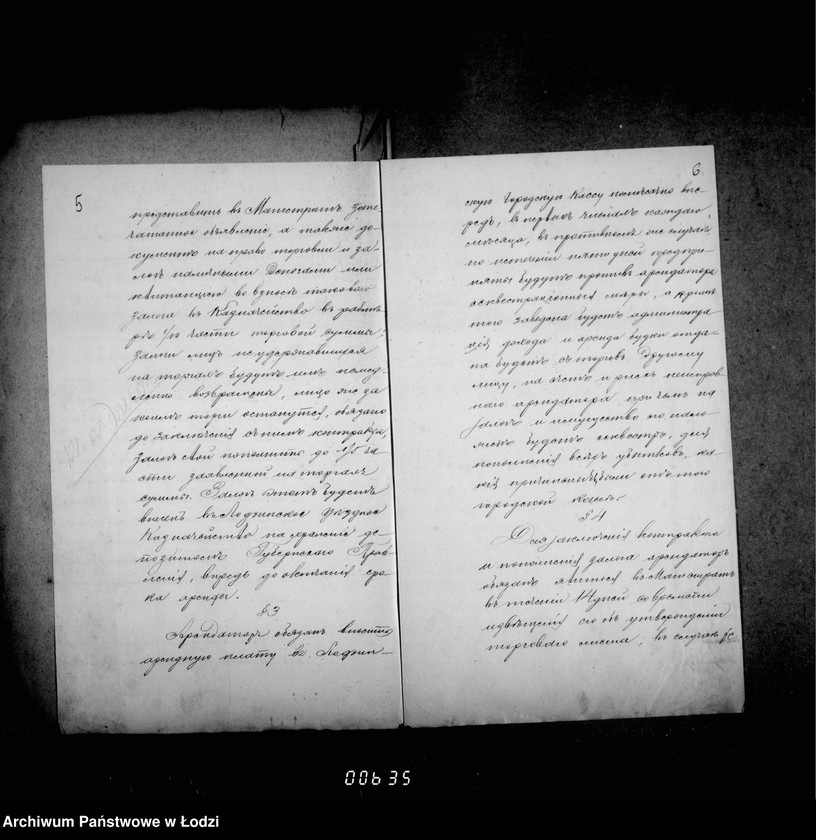 5
представить въ Магистратъ запе-
чатанное объявленіе, а также до-
кументъ на право торговли и за-
логъ наличными деньгами или
квитанцію во взносѣ таковаго
залога въ Казначейство въ размѣ-
рѣ 1/10 части торговой суммы;
залоги лицъ неудержавшихся
на торгахъ будутъ имъ немед-
ленно возвращены, лицо же за
коимъ торги останутся, обязано
до заключенія съ нимъ контракта,
залогъ свой пополнить до 1/5 ча-
сти заявленной на торгахъ
суммы. Залогъ этотъ будетъ
внесенъ въ Лодзинское Уѣздное
Казначейство на храненіе де-
позитомъ Губернскаго Прав-
ленія, впредь до окончанія сро-
ка аренды.
§ 3.
Арендаторъ обязанъ вносить
арендную плату въ Лодзин-
6
скую Городскую Кассу помѣсячно впе-
редъ, въ первыхъ числахъ каждаго
мѣсяца, въ противномъ же случаѣ
по истеченіи пяти дней предпри-
няты будутъ противъ арендатора
секвестраціонныя мѣры, а кромѣ
того заведена будетъ администра
ція дохода и аренда будки отда-
на будетъ съ торговъ другому
лицу, на счетъ и рискъ неисправ
наго арендатора, при чемъ на
залогъ и имущество по
будетъ секвестръ, для
пополненія всѣхъ убытковъ, ка
кія причинены будутъ отъ того
городской кассѣ.
§ 4
Для заключенія контракта
и пополненія залога арендаторъ
обязанъ явиться въ Магистратъ
въ теченіи 14 дней со времени
извѣщенія его объ утвержденіи
торговаго листа, въ случаѣ же
00635
Archiwum Państwowe w Łodzi